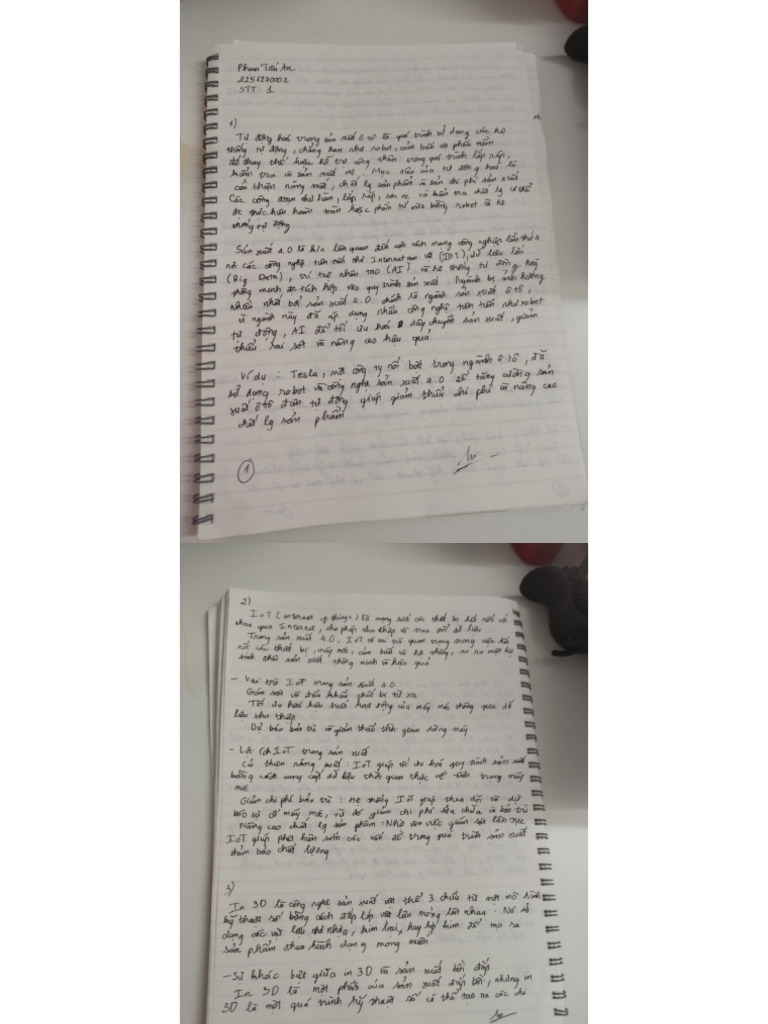 Phan Tấn An
STT: 1
1)
Tự động hoá trong sản xuất ô tô là quá trình sử dụng các hệ
thống tự động, chẳng hạn như robot, cảm biến và phần mềm
để thay thế hoặc hỗ trợ công nhân trong quá trình lắp ráp,
kiểm tra và sản xuất xe. Mục tiêu của tự động hoá là
cải thiện năng xuất, chất lg sản phẩm và sản chi phí sản xuất
Các công đoạn như hàn, lắp ráp, sơn xe và kiểm tra chất lg có thể
đc thực hiện hoàn toàn hoặc phần tử nửa bằng robot và hệ
thống tự động
Sản xuất 4.0 là liên quan đến cuộc cách mạng công nghiệp lần thứ 4
nó các công nghệ tiên tiến như Internet vạn vật (IOT), dữ liệu lớn
(Big Data), trí tuệ nhân tạo (AI) và hệ thống tự động hoá
thông minh đc tích hợp vào quy trình sản xuất. Ngành bị ảnh hưởng
nhiều nhất bởi sản xuất 4.0 chính là ngành sản xuất ô tô,
vì ngành này đã áp dụng nhiều công nghệ tiên tiến như robot
tự động, AI để tối ưu hoá dây chuyền sản xuất, giảm
thiểu sai sót và nâng cao hiệu quả
Ví dụ: Tesla, một công ty nổi bật trong ngành ô tô, đã
sử dụng robot và công nghệ sản xuất 4.0 để tăng cường sản
xuất ô tô điện tự động giúp giảm thiểu chi phí và nâng cao
chất lg sản phẩm
1
2)
IoT (internet of things) là mạng lưới các thiết bị kết nối với
nhau qua Internet, cho phép thu thập và trao đổi dữ liệu
Trong sản xuất 4.0, IoT có vai trò quan trọng trong việc kết
nối các thiết bị, máy móc, cảm biến và hệ thống, tạo ra một hệ
sinh thái sản xuất thông minh và hiệu quả
- Vai trò IoT trong sản xuất 4.0
Giám sát và điều khiển thiết bị từ xa
Tối ưu hoá hiệu suất hoạt động của máy móc thông qua dữ
liệu thu thập
Dự báo bảo trì và giảm thiểu thời gian dừng máy
- Lợi ích IoT trong sản xuất
Cải thiện năng xuất: IoT giúp tối ưu hoá quy trình sản xuất
bằng cách cung cấp dữ liệu thời gian thực về tình trạng máy
móc
Giảm chi phí bảo trì: Hệ thống IoT giúp theo dõi và dự
báo sự cố máy móc, từ đó giảm chi phí sửa chữa và bảo trì
Nâng cao chất lg sản phẩm: Nhờ vào việc giám sát liên tục
IoT giúp phát hiện sớm các vấn đề trong quá trình sản xuất
đảm bảo chất lượng
3)
In 3D là công nghệ sản xuất vật thể 3 chiều từ một mô hình
kỹ thuật số bằng cách đắp lớp vật liệu mỏng lên nhau. Nó sử
dụng các vật liệu như nhựa, kim loại, hay hợp kim để tạo ra
sản phẩm theo hình dạng mong muốn
- Sự khác biệt giữa in 3D và sản xuất bồi đắp
In 3D là một phần của sản xuất đắp bồi, nhưng in
3D là một quá trình kỹ thuật số có thể tạo ra các chi